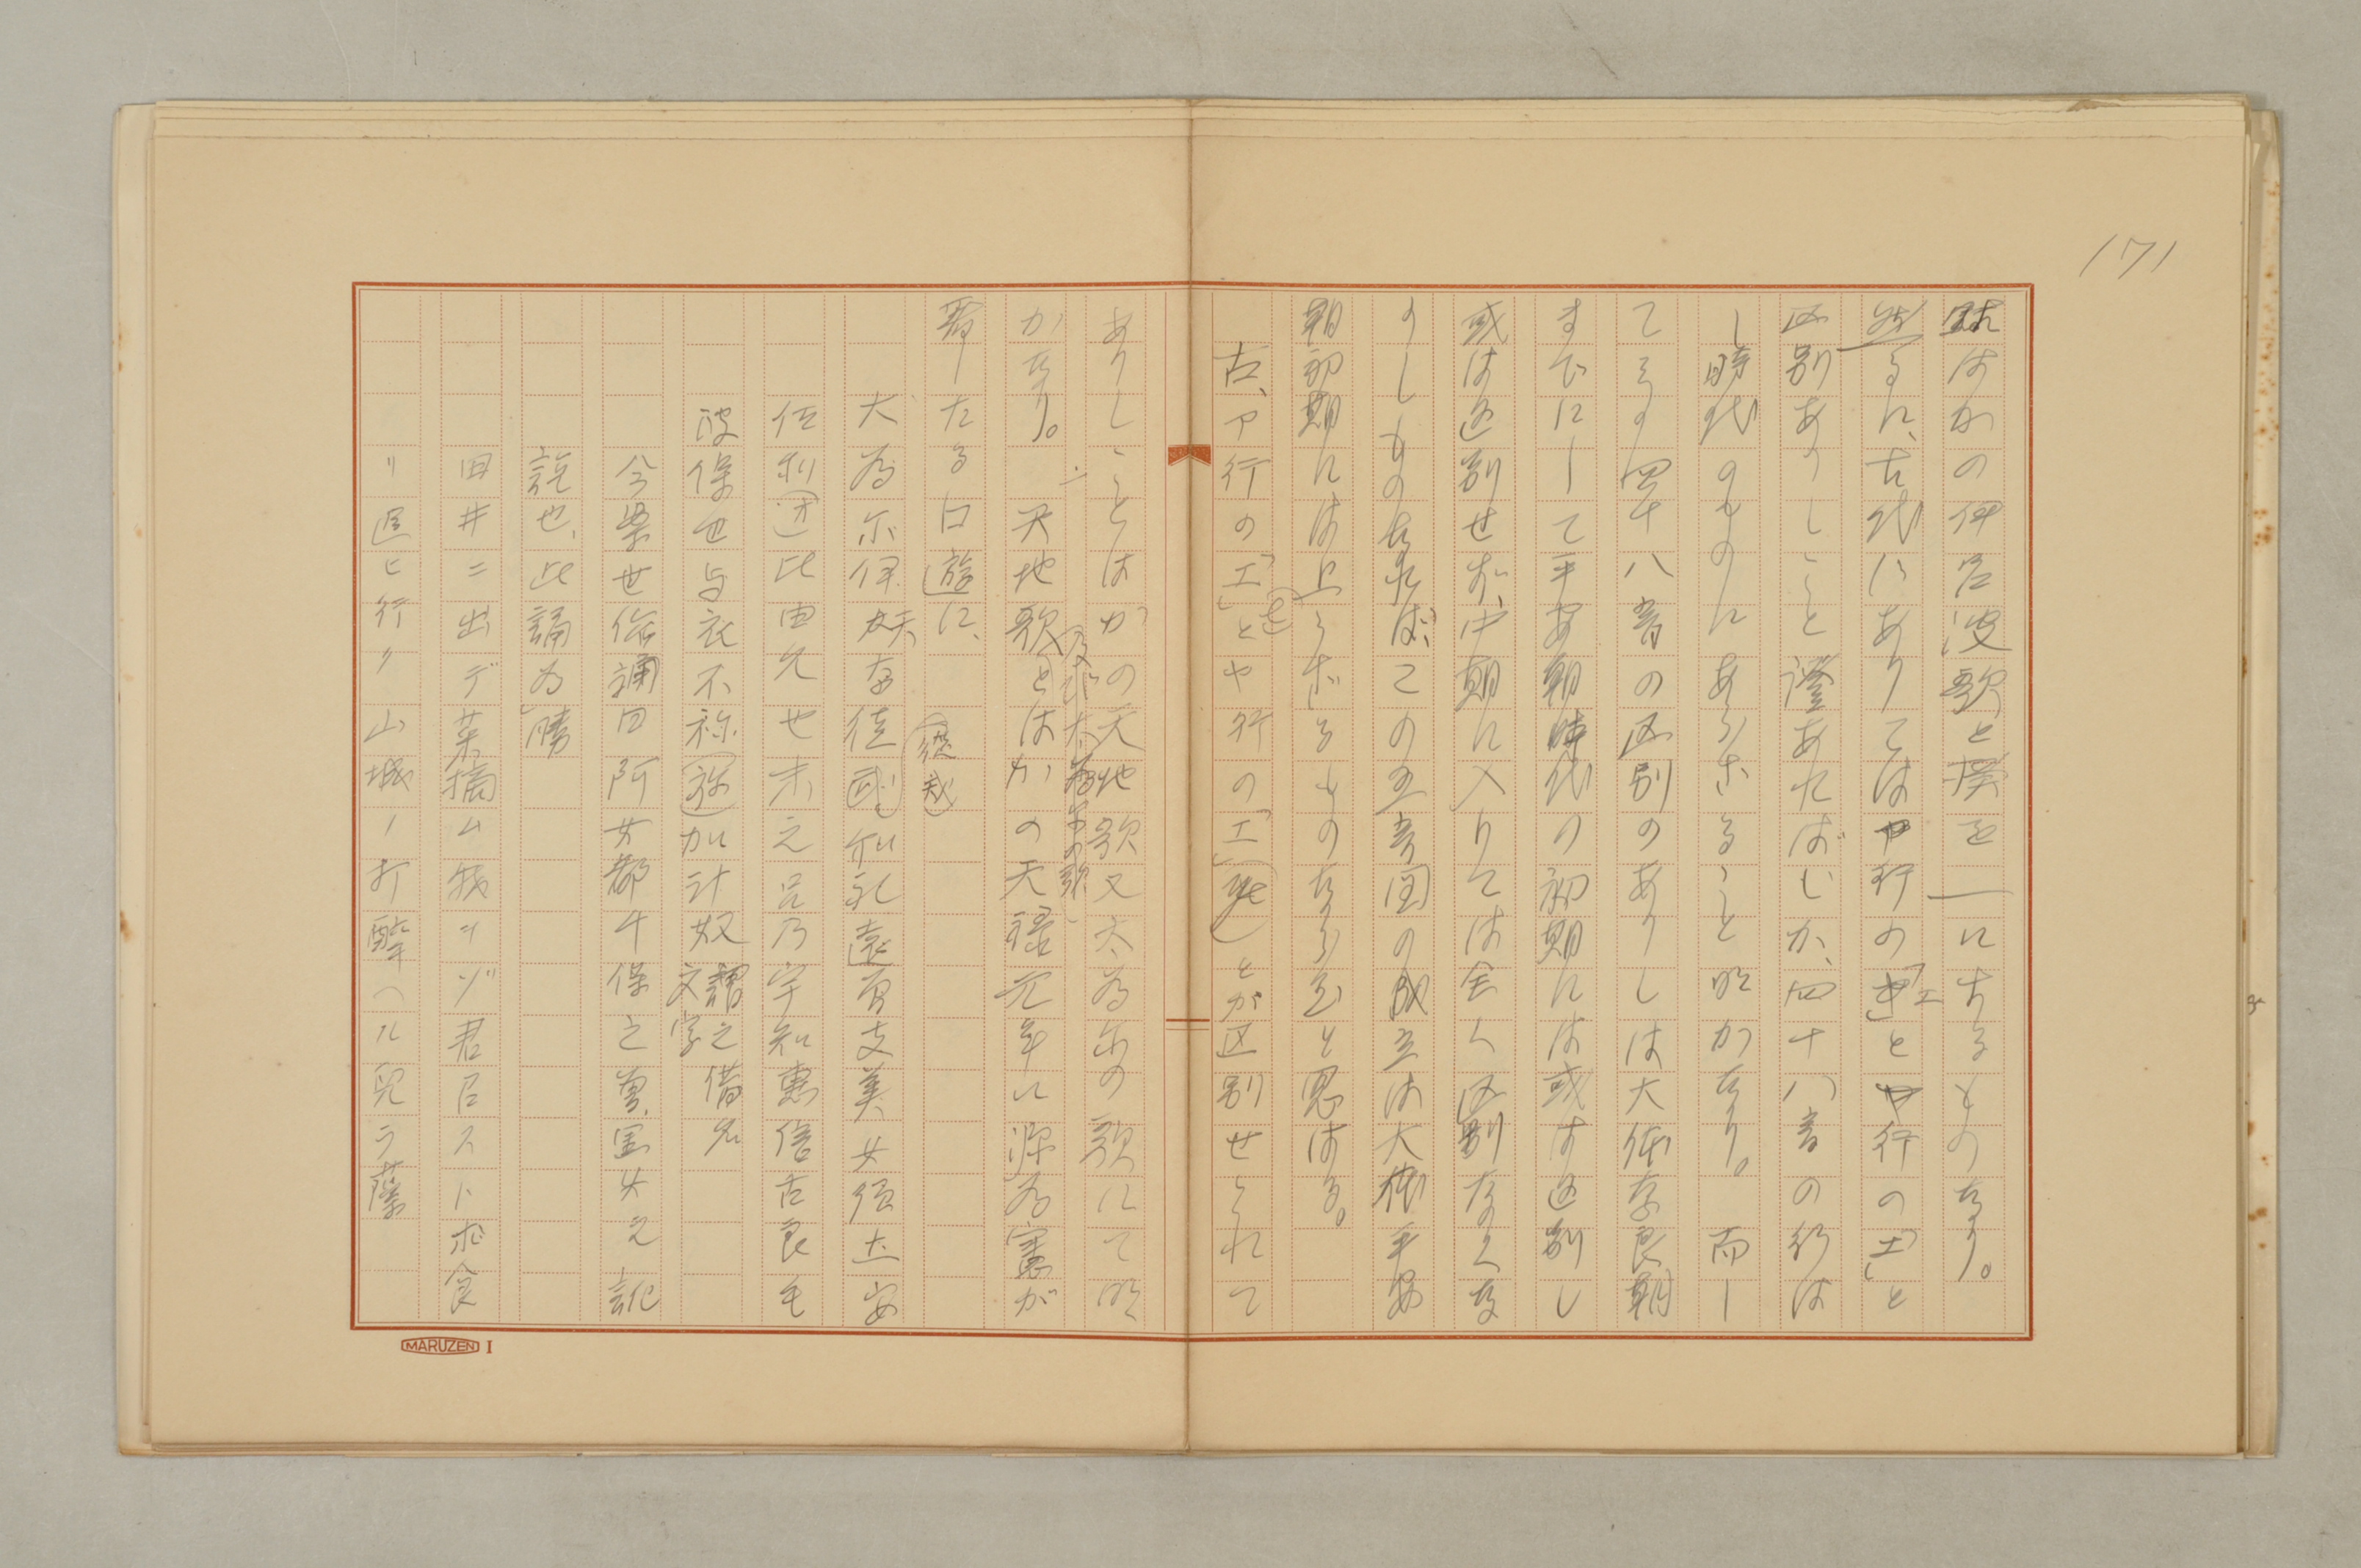 171
はかの伊呂波歌と揆を一にするものなり。
然るに、古代にありてはア行の「エ」とヤ行の「エ」と
区別ありしこと證あればじか、四十八音の行は
し時代のものにあらざること明かなり。而し
てその四十八音の区別のありしは大体奈良朝
までにして平安朝時代の初期には或は区別し
或は区別せず、中期に入りては全く区別なくな
りしものなれば、この五音図の成立は大体平安
朝初期には上らざるものならむと思はる。
古、ア行の「エ」とヤ行の「エ」とが区別せられて
ありしことはかの天地歌又大為尓の歌にて明
かなり。天地歌及び大為尓の歌とはかの天禄元年に源為憲が
著したる口遊に、
大為尓伊天奈徒武和礼遠曽支美女須土安
佐利(追)比由久也末之呂乃宇知恵倍古良毛
波保世与衣不祢(弥)加計奴 謂之借名文字
今案世俗誦曰阿女都千保之曽里女之訛
説也、此誦為勝
田井ニ出デ菜摘ム我ヲゾ君召スト求食
リ追ヒ行ク山城ノ打酔ヘル児ラ藻
MARUZEN I